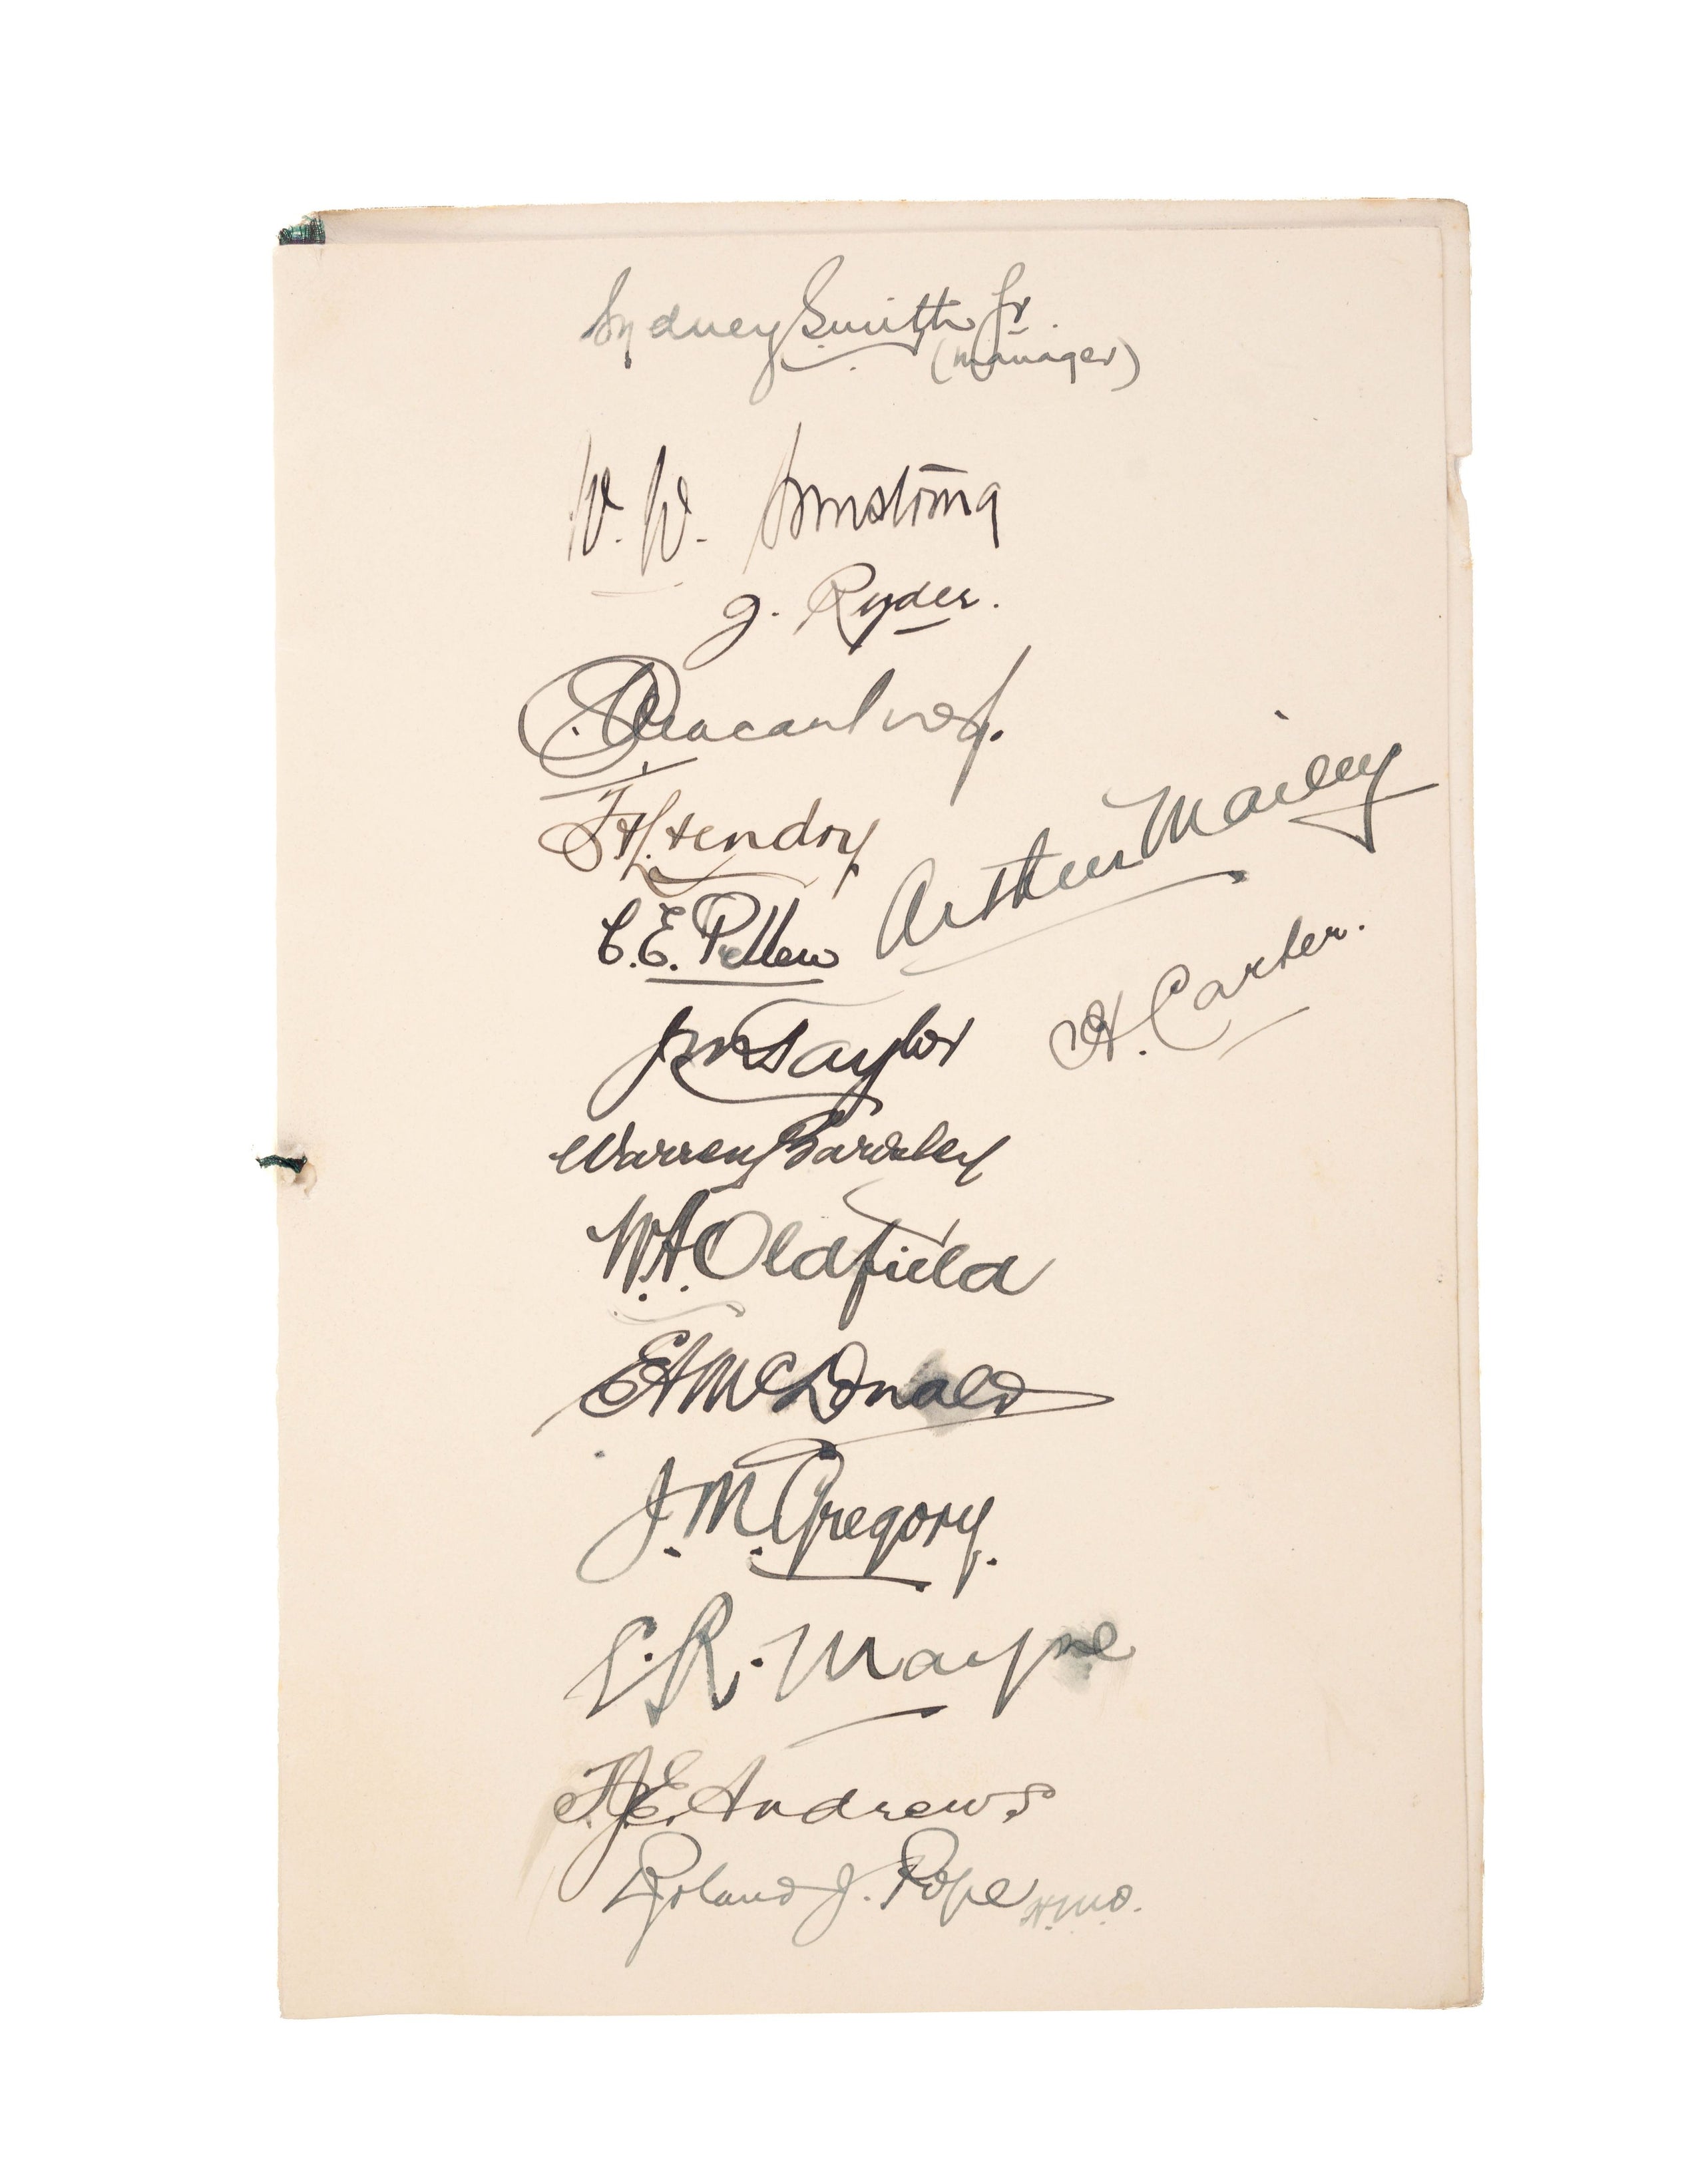 Sydney Smith Jr.
(manager)
W. W. Armstrong
J. Ryder.
C. G. Macartney.
H. L. Hendry
Arthur Mailey
C. E. Pellew
H. Carter.
J M Taylor
Warren Bardsley
W. A. Oldfield
E A McDonald
J. M. Gregory.
E. R. Mayne
T. J. E. Andrews
Roland J. Pope H.M.O.